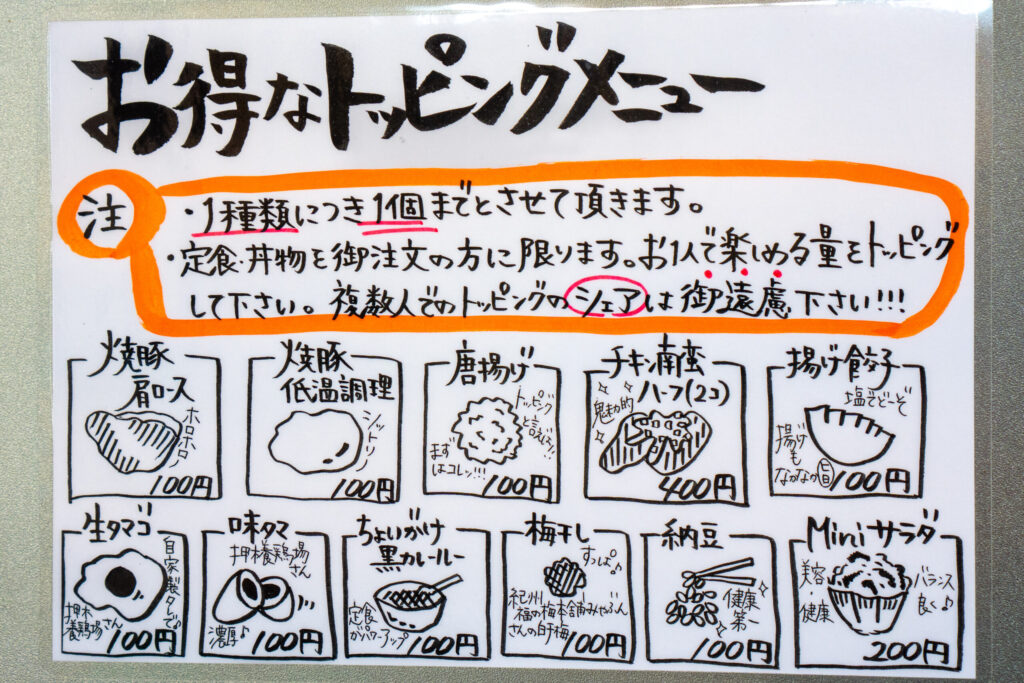 お得なトッピングメニュー
注
・1種類につき1個までとさせて頂きます。
・定食・丼物を御注文の方に限ります。お1人で楽しめる量をトッピング
して下さい。複数人でのトッピングのシェアは御遠慮下さい!!!
焼豚
肩ロース
ホロホロ♪
100円
焼豚
低温調理
シットリ♪
100円
唐揚げ
トッピング
と言えば!!
まず
はコレッ!!!
100円
チキン南蛮
ハーフ(2コ)
魅力的
400円
揚げ餃子
塩でどーぞ
揚げ
も
なかなか旨
100円
生タマゴ
自家製タレで♪
押本
養鶏場さん
100円
味タマ
押本養鶏場
さん
濃厚♪
100円
ちょいがけ
黒カレールー
定食
がパワーアップ
100円
梅干し
すっぱ♪
紀州
福の梅本舗みやぶん
さんの白干梅
100円
納豆
健康
第一
100円
Miniサラダ
美容
健康
バランス
良く♪
200円